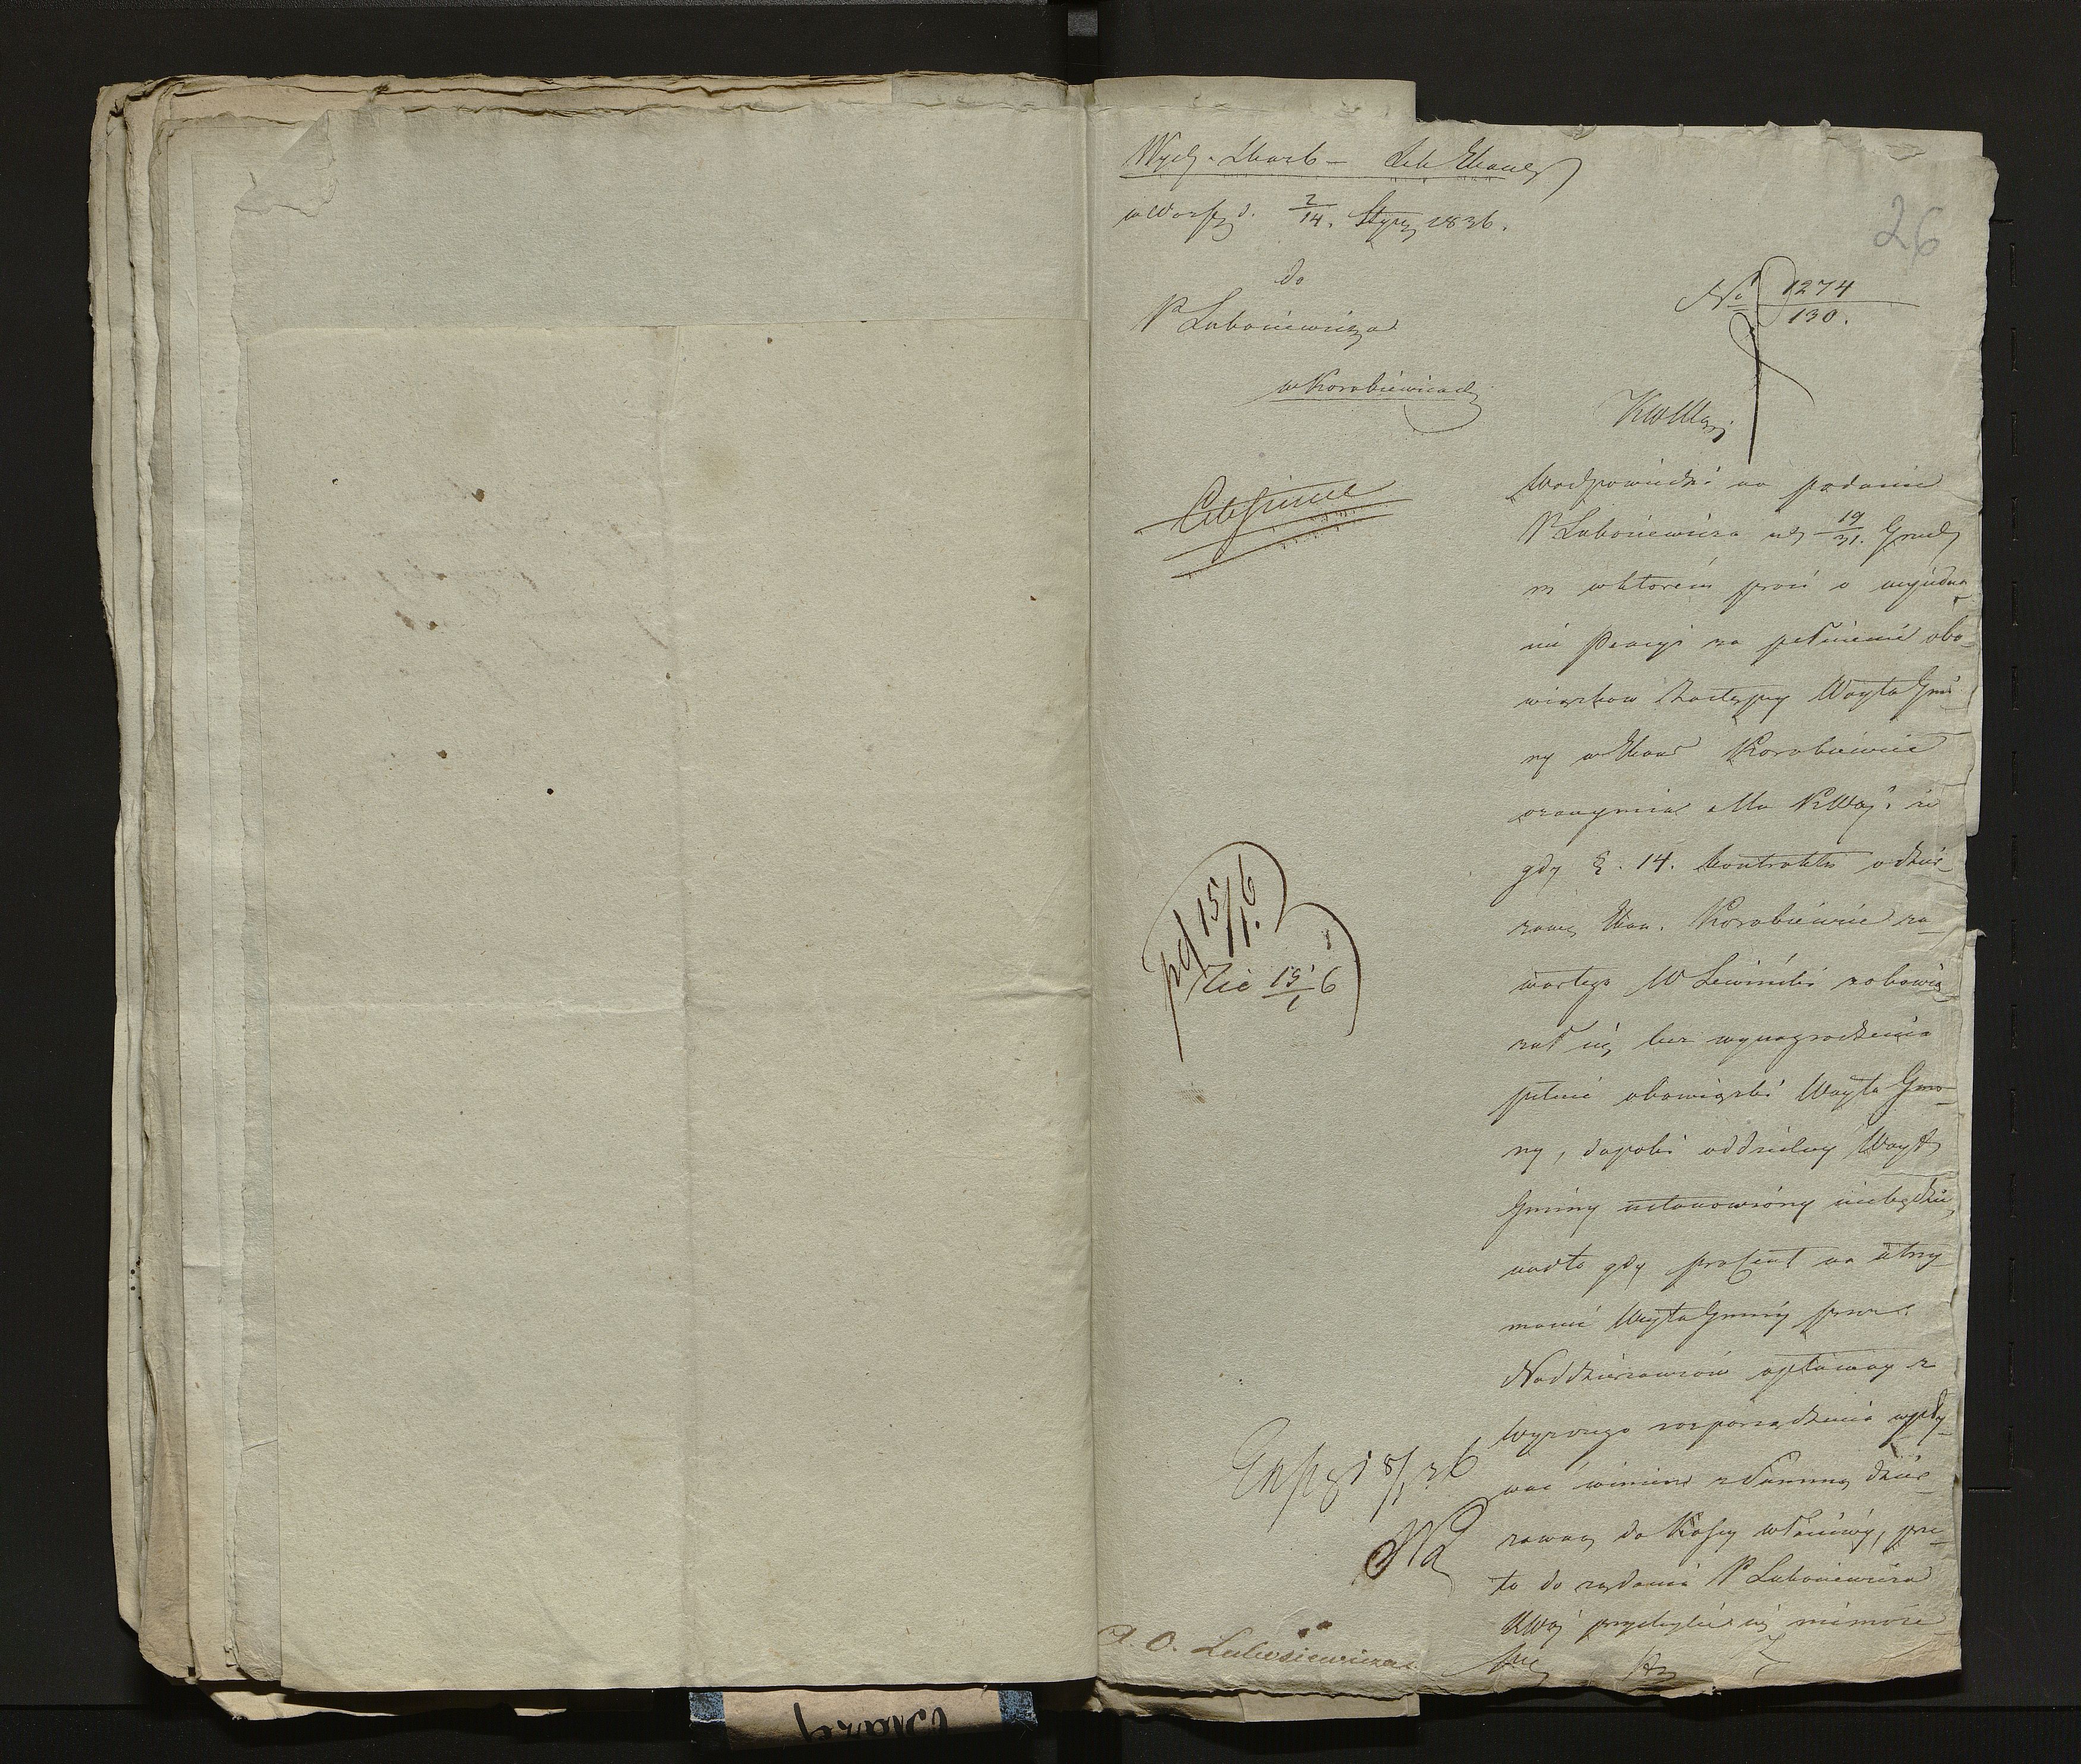 Wydz. Skarb – Sek Ekono
w Warsz d. 2/14. Stycz 1836.
26
do
P Lubosiewicza
w Korabiewicach
No 1274/130.
KWMaz.
W odpowiedzi na podanie
P Lubosiewicza z d 19/31. Grud
w ktorém prosi o wyjedna
nie Pensyi za pełnienie obo-
wiązkow Zastępcy Woyta Gmi
ny w Ekon Korabiewice
oznaymia Mu KWoj: że
gdy §. 14. kontraktu o dzier
zawę Ekon. Korabiewice za-
wartego W Lewiński zobowią
zał się bez wynagrodzenia
pełnić obowiązki Woyta Gmi-
ny, dopoki oddzielny Woyt
Gminy ustanowiony niebędzie,
nadto gdy procent na utrzy
manie Woyta Gminy przez
Naddzierzawców opłacany z
wyzszego rozporządzenia wpły-
wać winien z Summą dzier
zawną do Kassy właściwéy, prze-
to do żądania P Lubosiewicza
KWoj przychylić się niemoże
pd 15/1.6
Lic 15/1 6
Exp 18/1 36
A. O. Lubosiewicza